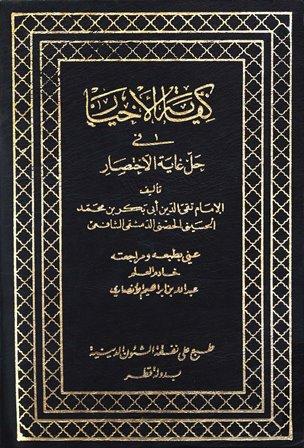 كفاية الأخيار
في
حل غاية الاختصار
تأليف
الإمام تقي الدين أبي بكر بن محمد
الحسيني الحصني الدمشقي الشافعي
عني بطبعه ومراجعته
خادم العلم
عبد الله بن إبراهيم الأنصاري
طبع على نفقة الشئون الدينية
بدولة قطر